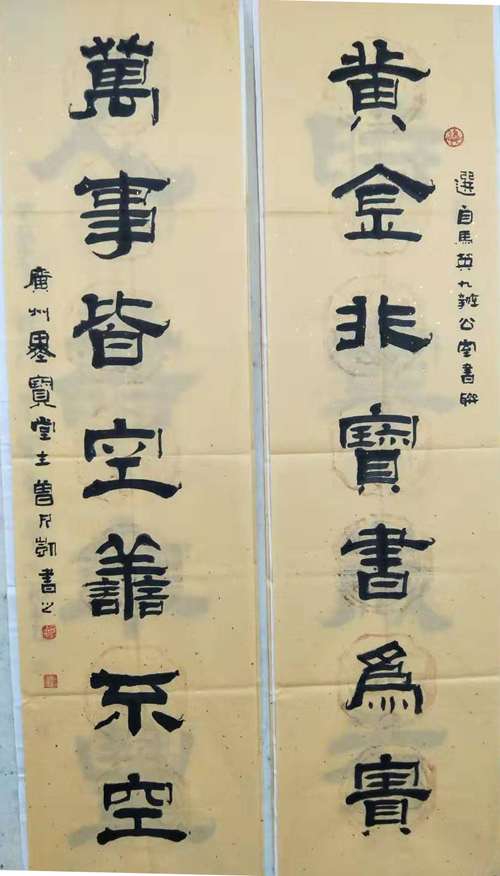 選自馬英九辦公室書聯
黄金非寶書為寶
萬事皆空譱不空
廣州墨寶堂主曾凡凱書之